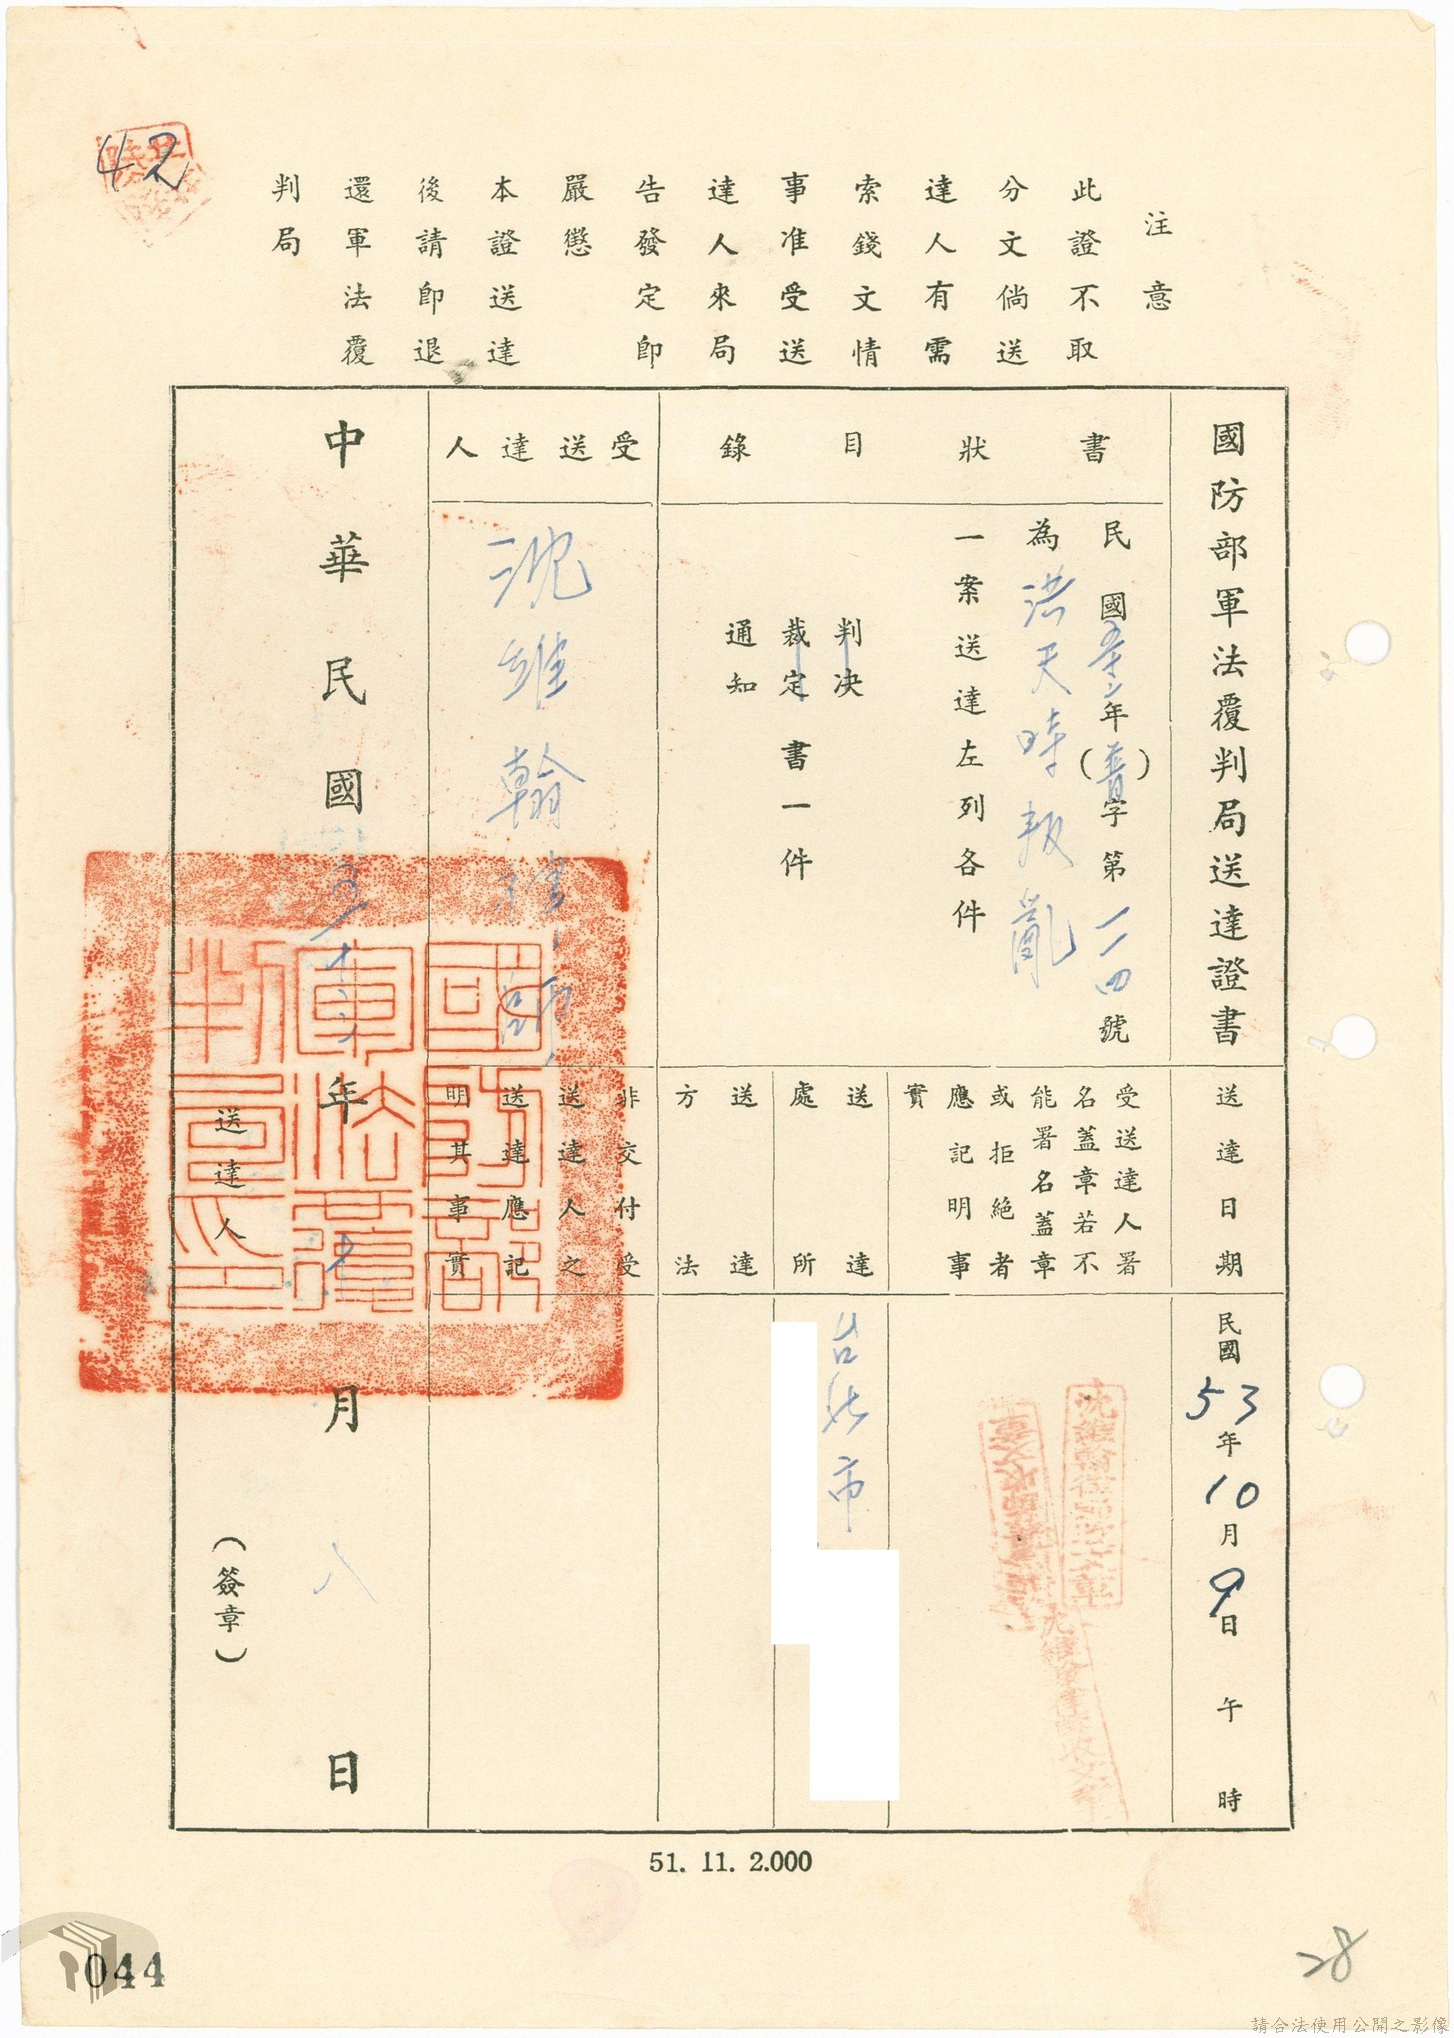 42
注意
此證不取
分文倘送
達人有需
索錢文情
事准受送
達人來局
告發定即
嚴懲
本證送達
後請即退
還軍法覆
判局
國防部軍法覆判局送達證書
書狀目錄
民國五十三年(普)字第一一四號
為洪天時叛亂
一案送達左列各件
判決
裁定書一件
通知
受送達人
沈維翰律師
送達日期
民國53年10月9日午時
受送達人署
名蓋章若不
能署名蓋章
或拒絕者
應記明事
實
沈維翰律師
送達處所
台北市
送達方法
非交付受
送達人之
送達應記
明其事實
國防部軍法覆判局印
中華民國五十三年十月八日
送達人
(簽章)
51. 11. 2.000
044
28
請合法使用公開之影像